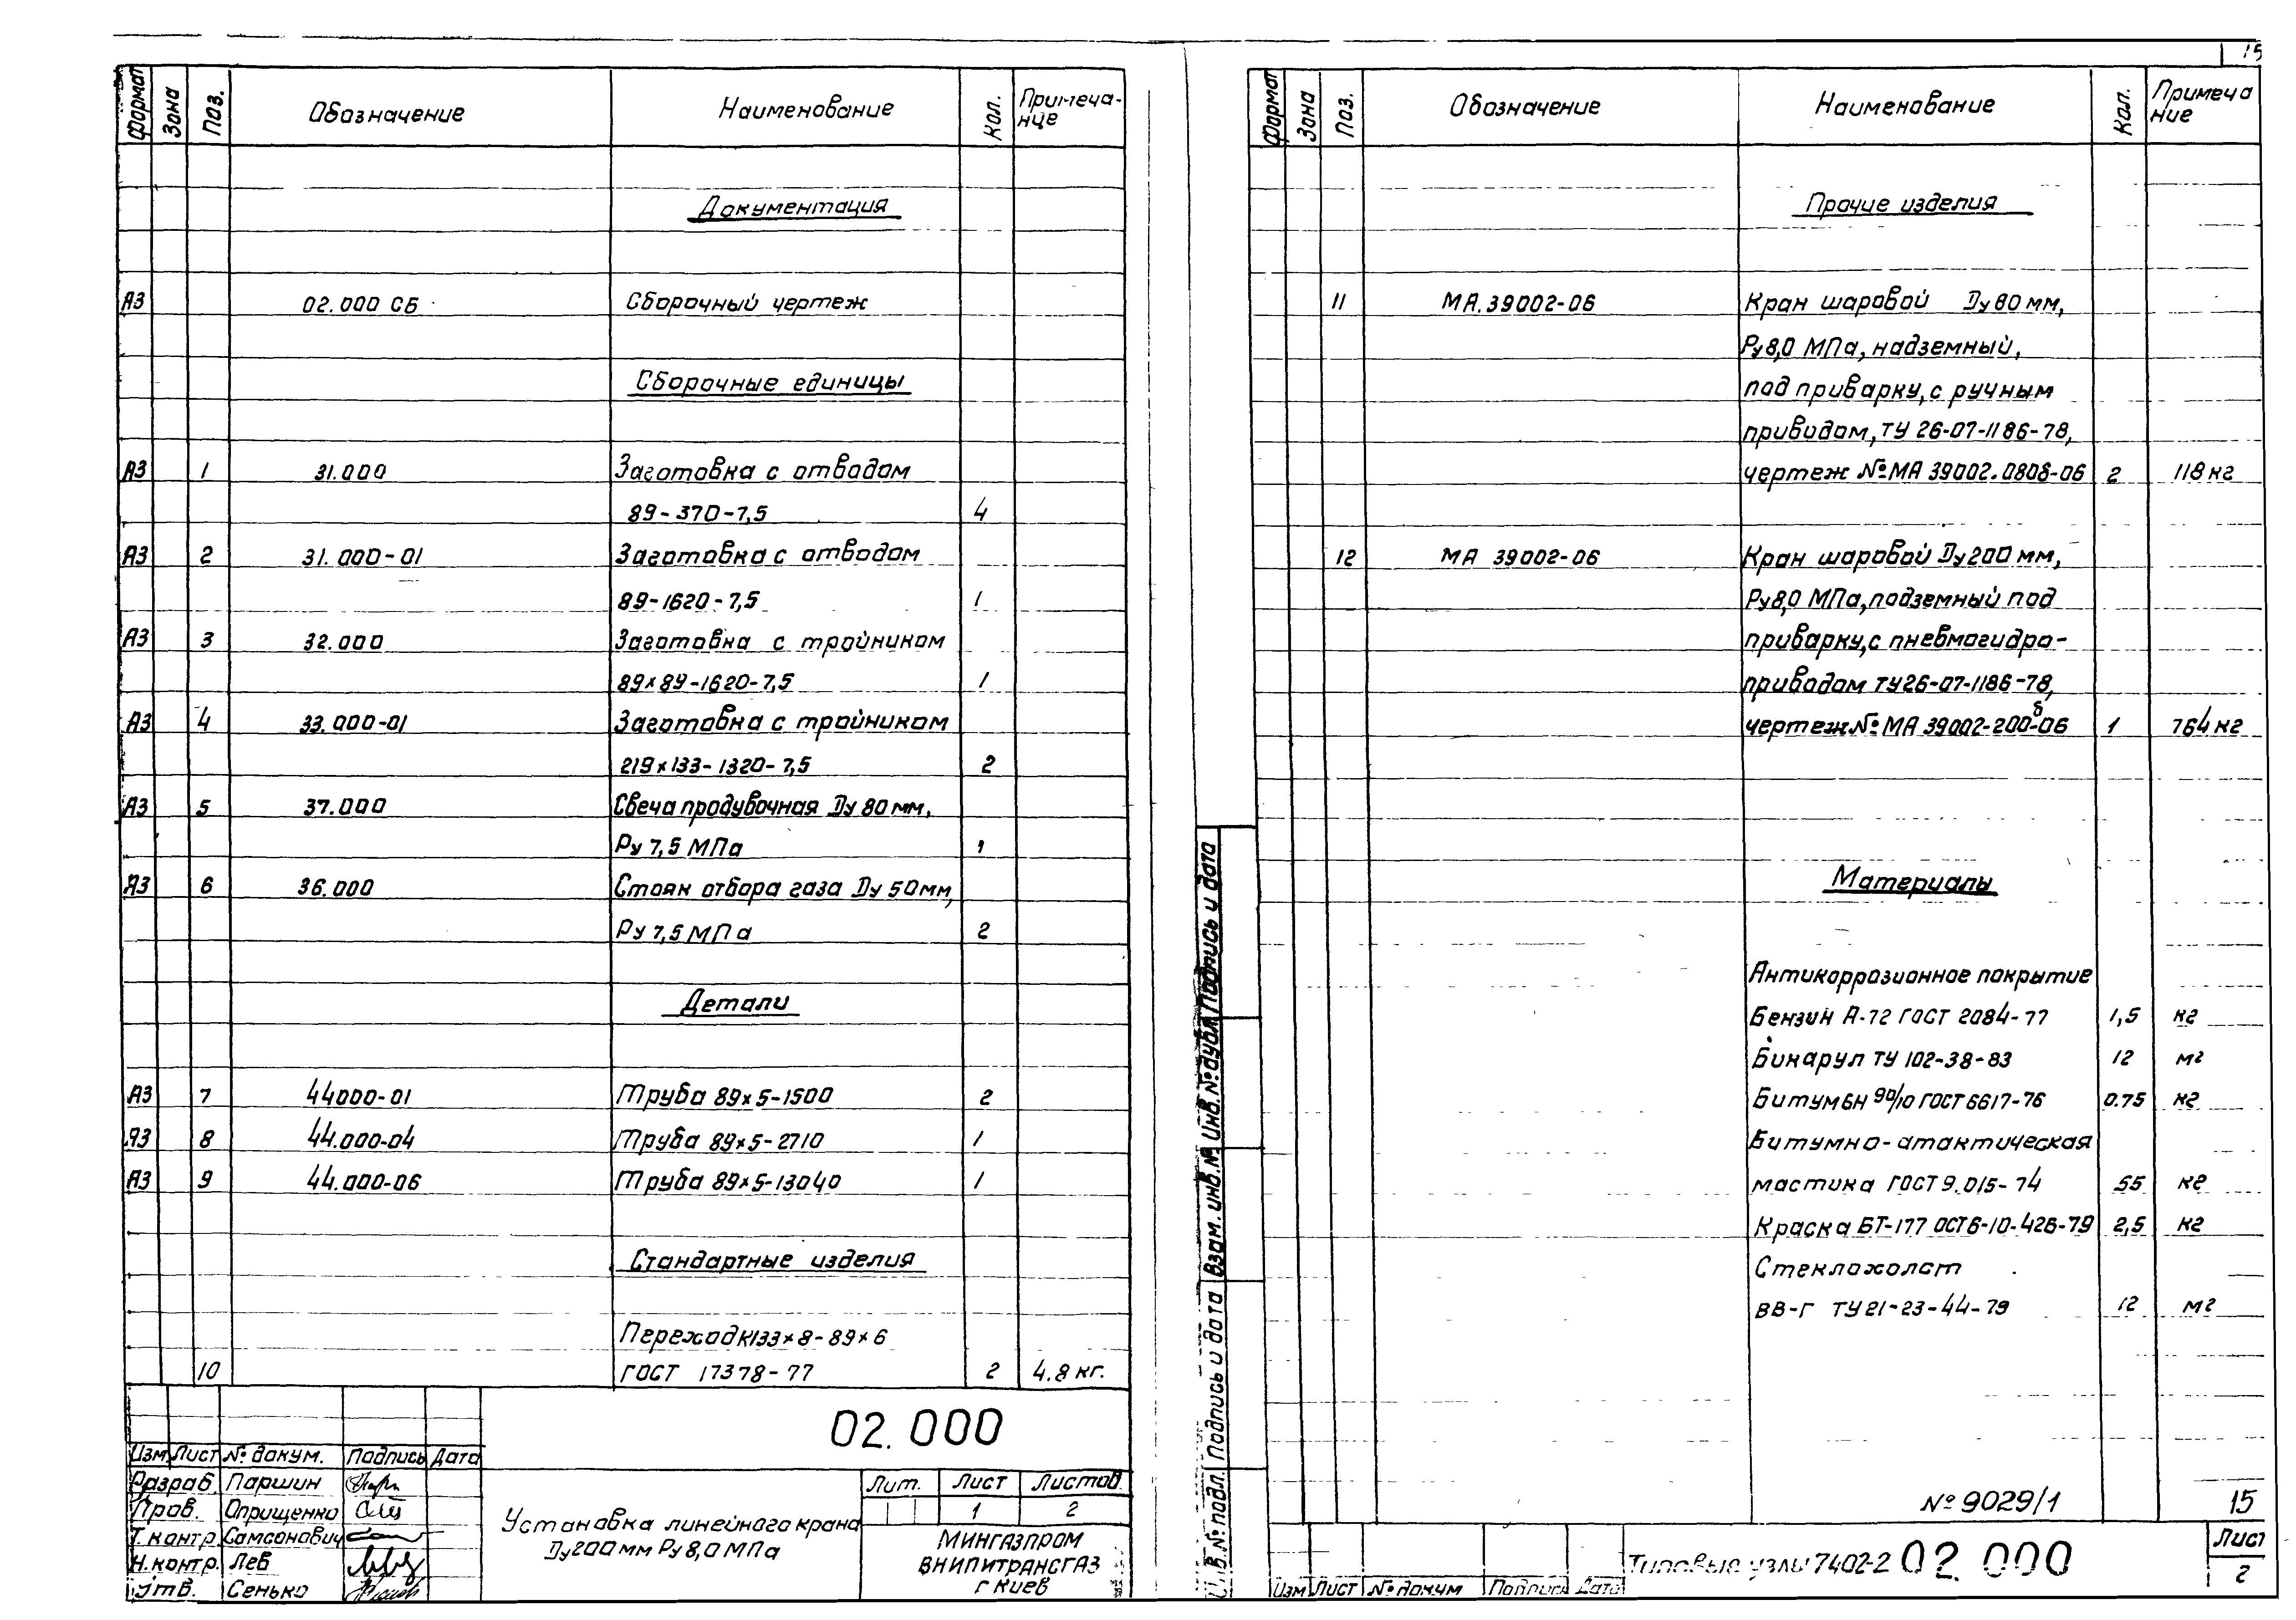 15
Формат Зона Поз. Обозначение Наименование Кол. Примеча-
нце
Документация
А3 02.000 СБ Сборочный чертеж
Сборочные единицы
А3 1 31.000 Заготовка с отводом
89-370-7,5 4
А3 2 31.000-01 Заготовка с отводом
89-1620-7,5 1
А3 3 32.000 Заготовка с тройником
89×89-1620-7,5 1
А3 4 33.000-01 Заготовка с тройником
219×133-1320-7,5 2
А3 5 37.000 Свеча продувочная Ду 80 мм,
Ру 7,5 МПа 1
А3 6 36.000 Стояк отбора газа Ду 50мм,
Ру 7,5 МПа 2
Детали
А3 7 44000-01 Труба 89×5-1500 2
А3 8 44.000-04 Труба 89×5-2710 1
А3 9 44.000-06 Труба 89×5-13040 1
Стандартные изделия
Переход К133×8-89×6
10 ГОСТ 17378-77 2 4.8 кг.
02.000
Изм Лист № докум. Подпись Дата
Разраб Паршин
Пров. Оприщенко
Т.контр. Самсонович
Н.контр. Лев
Утв. Сенько
Установка линейного крана
Ду200мм Ру 8,0 МПа
Лит. Лист Листов.
1 2
Мингазпром
ВНИПИТРАНСГАЗ
г Киев
Формат Зона Поз. Обозначение Наименование Кол. Примеча
ние
Прочие изделия
11 МА.39002-06 Кран шаровой Ду 80 мм,
Ру8,0 МПа, надземный,
под приварку, с ручным
приводом, ТУ 26-07-1186-78,
чертеж №МА 39002.080б-06 2 118 кг
12 МА 39002-06 Кран шаровой Ду 200 мм,
Ру8,0 МПа, подземный под
приварку, с пневмогидро-
приводом ТУ26-07-1186-78,
чертеж№МА 39002-200б-06 1 764 кг
Материалы
Антикоррозионное покрытие
Бензин А-72 ГОСТ 2084-77 1,5 кг
Бикарул ТУ 102-38-83 12 м2
Битум БН 90/10 ГОСТ 6617-76 0.75 кг
Битумно-атактическая
мастика ГОСТ 9.015-74 55 кг
Краска БТ-177 ОСТ6-10-426-79 2,5 кг
Стеклохолст
ВВ-Г ТУ21-23-44-79 12 м2
№ 9029/1 15
Инв.№подл. Подпись и дата Взам.инв.№ Инв.№дубл Подпись и дата
Изм Лист № докум Подпись Дата
Типовые узлы 7402-2 02.000
Лист
2